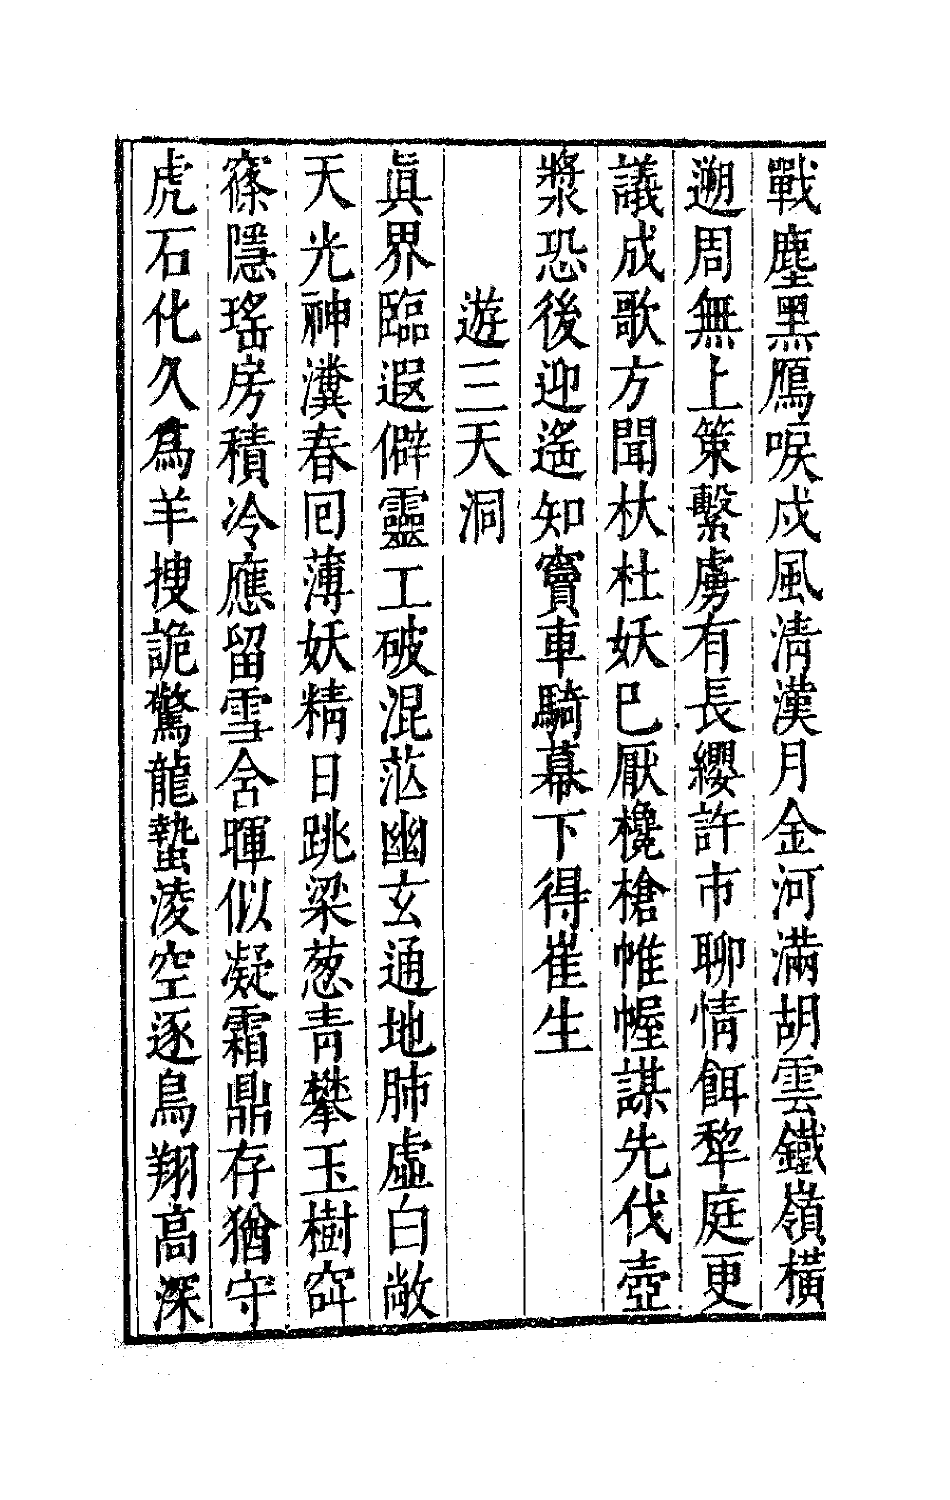 戰塵黑鴈唳戍風清漢月金河滿胡雲鐵嶺橫
遡周無上策繫虜有長纓許市聊情餌犂庭更
議成歌方聞杕杜妖巳厭欃槍帷幄謀先伐壺
漿恐後迎遙知竇車騎幕下得崔生
遊三天洞
眞界臨遐僻靈工破混茫幽玄通地肺虛白敞
天光神瀵春囘薄妖精日跳梁葱青攀玉樹窅
窱隱瑤房積冷應留雪含暉似凝霜鼎存猶守
虎石化久爲羊搜詭驚龍蟄淩空逐鳥翔高深